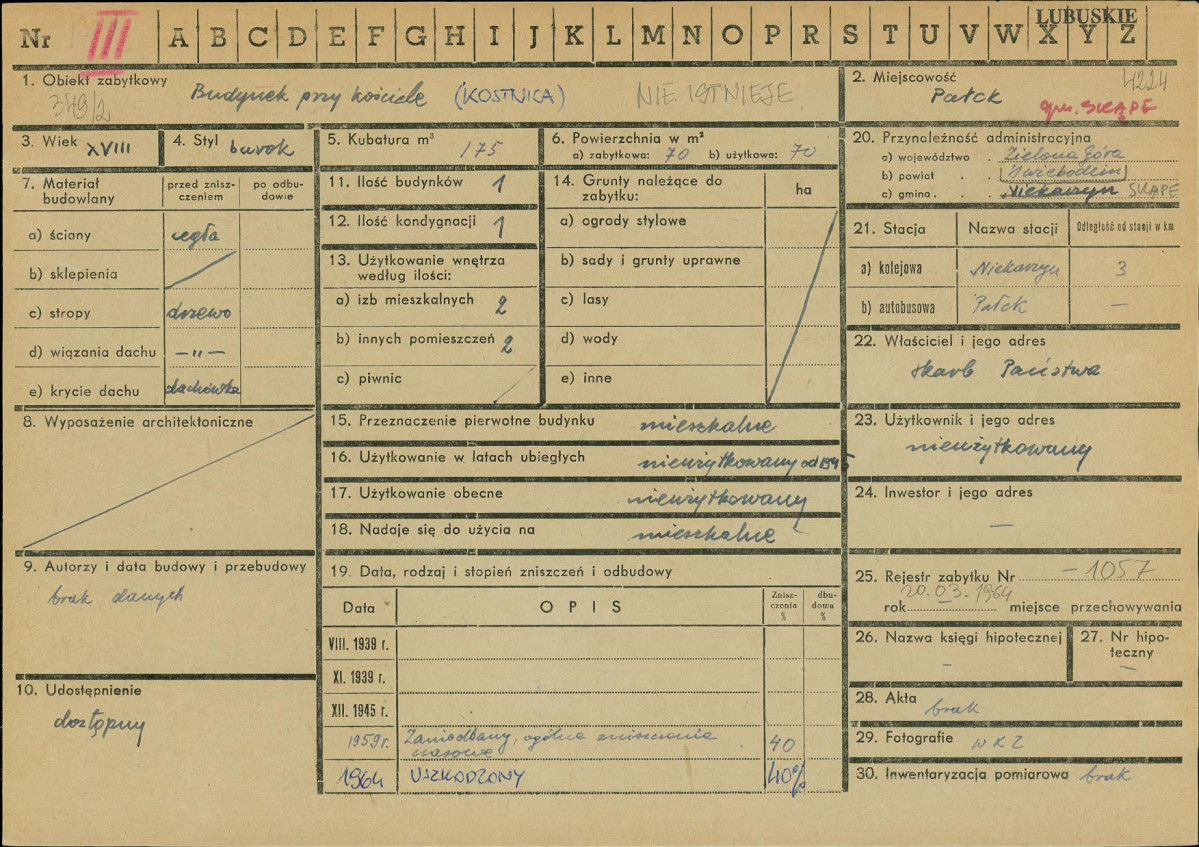 LUBUSKIE
Nr III A B C D E F G H I J K L M N O P R S T U V W X Y Z
1. Obiekt zabytkowy
349/2
Budynek przy kościele (KOSTNICA) NIE ISTNIEJE
2. Miejscowość
4224
Pałck
gm. SKĄPE
3. Wiek XVIII
4. Styl barok
5. Kubatura m³ 175
6. Powierzchnia w m²
a) zabytkowa: 70 b) użytkowa: 70
20. Przynależność administracyjna
a) województwo . Zielona Góra
b) powiat . . Świebodzin
c) gmina . . Niekarzyn SKĄPE
7. Materiał budowlany
przed znisz-
czeniem
po odbu-
dowie
a) ściany cegła
b) sklepienia
c) stropy drzewo
d) wiązania dachu —„—
e) krycie dachu dachówka
11. Ilość budynków 1
12. Ilość kondygnacji 1
13. Użytkowanie wnętrza
według ilości:
a) izb mieszkalnych 2
b) innych pomieszczeń 2
c) piwnic
14. Grunty należące do
zabytku:
ha
a) ogrody stylowe
b) sady i grunty uprawne
c) lasy
d) wody
e) inne
21. Stacja Nazwa stacji Odległość od stacji w km
a) kolejowa Niekarzyn 3
b) autobusowa Pałck —
22. Właściciel i jego adres
skarb Państwa
8. Wyposażenie architektoniczne
15. Przeznaczenie pierwotne budynku mieszkalne
16. Użytkowanie w latach ubiegłych nieużytkowany od 1945
17. Użytkowanie obecne nieużytkowany
18. Nadaje się do użycia na mieszkalne
23. Użytkownik i jego adres
nieużytkowany
24. Inwestor i jego adres
—
9. Autorzy i data budowy i przebudowy
brak danych
10. Udostępnienie
dostępny
19. Data, rodzaj i stopień zniszczeń i odbudowy
Data OPIS
Znisz-
czenia
%
dbu-
dowa
%
VIII. 1939 r.
XI. 1939 r.
XII. 1945 r.
1959 r. Zaniedbany, ogólne zniszczenie
40
1964 USZKODZONY 40%
25. Rejestr zabytku Nr - 1057
20.03.1964
rok — miejsce przechowywania
26. Nazwa księgi hipotecznej
-
27. Nr hipo-
teczny
—
28. Akta brak
29. Fotografie WKZ
30. Inwentaryzacja pomiarowa brak